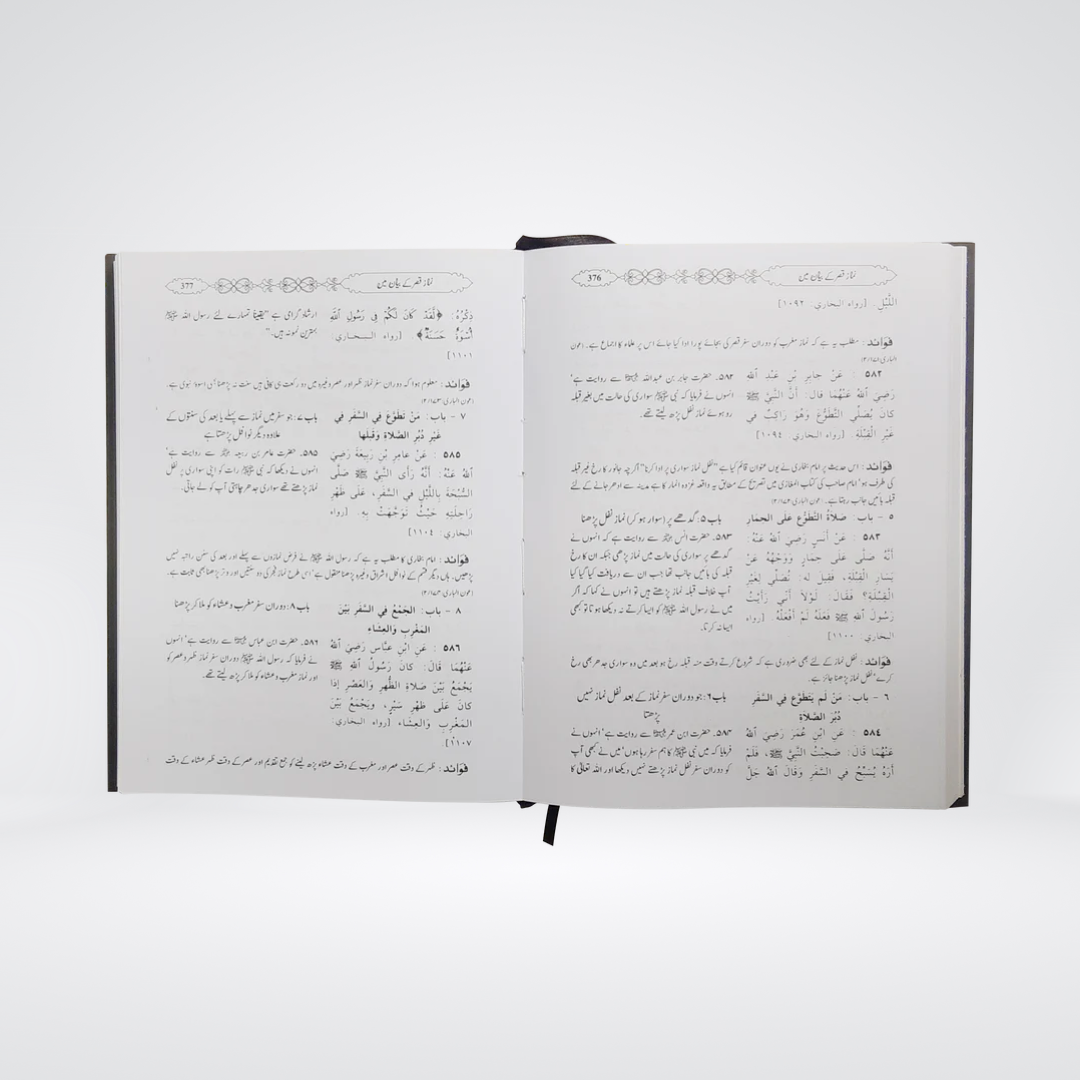 376
نماز قصر کے بیان میں
اللَّيْلِ. [رواه البخاري: ١٠٩٢]
فَوَائد : مطلب یہ ہے کہ نماز مغرب کو دوران سفر قصر کی بجائے پورا ادا کیا جائے اس پر علماء کا اجماع ہے۔ (عون
الباری:
٥٨٢ : عَنْ جابِرِ بْنِ عَبْدِ اللهِ
رَضِيَ اللهُ عَنْهُمَا قَالَ: أَنَّ النَّبِيَّ ﷺ
كانَ يُصَلِّي التَّطَوُّعَ وَهُوَ رَاكِبٌ في
غَيْرِ الْقِبْلَةِ. [رواه البخاري: ١٠٩٤]
۵۸۲۔ حضرت جابر بن عبداللہ سے روایت ہے'
انہوں نے فرمایا کہ نبی ﷺ سواری کی حالت میں بغیر قبلہ
رو ہوئے نماز نفل پڑھ لیتے تھے۔
فَوَائد : اس حدیث پر امام بخاری نے یوں عنوان قائم کیا ہے "نفل نماز سواری پر ادا کرنا" اگرچہ جانور کا رخ غیر قبلہ
کی طرف ہو' امام صاحب کی کتاب المغازی میں تصریح کے مطابق یہ واقعہ غزوہ انمار کا ہے مدینہ سے ادھر جانے کے لئے
قبلہ بائیں جانب رہتا ہے۔ (عون الباری:
٥ - باب: صَلاَةُ التَّطَوُّعِ عَلَى الحِمَارِ
باب ۵: گدھے پر (سوار ہو کر) نماز نفل پڑھنا
٥٨٣ : عَنْ أَنَسٍ رَضِيَ اللهُ عَنْهُ:
أَنَّهُ صَلَّى عَلَى حِمَارٍ وَوَجْهُهُ عَنْ
يَسَارِ الْقِبْلَةِ، فَقِيلَ لَهُ: تُصَلِّي لِغَيْرِ
الْقِبْلَةِ؟ فَقَالَ: لَوْلاَ أَنِّي رَأَيْتُ
رَسُولَ اللهِ ﷺ فَعَلَهُ لَمْ أَفْعَلْهُ. [رواه
البخاري: ١١٠٠]
۵۸۳۔ حضرت انس سے روایت ہے کہ انہوں نے
گدھے پر سواری کی حالت میں نماز پڑھی جبکہ ان کا رخ
قبلہ کی بائیں جانب تھا جب ان سے دریافت کیا گیا کیا
آپ خلاف قبلہ نماز پڑھتے ہیں تو انہوں نے کہا کہ اگر
میں نے رسول اللہ ﷺ کو ایسا کرتے نہ دیکھا ہوتا تو کبھی
ایسا نہ کرتا۔
فَوَائد : نفل نماز کے لئے بھی ضروری ہے کہ شروع کرتے وقت منہ قبلہ رخ ہو بعد میں وہ سواری جدھر بھی رخ
کرے نفل نماز پڑھنا جائز ہے۔
٦ - باب: مَنْ لَمْ يَتَطَوَّعْ فِي السَّفَرِ
دُبُرَ الصَّلاَةِ
باب ۶: جو دوران سفر نماز کے بعد نفل نماز نہیں
پڑھتا
٥٨٤ : عَنِ ابْنِ عُمَرَ رَضِيَ اللهُ
عَنْهُمَا قَالَ: صَحِبْتُ النَّبِيَّ ﷺ، فَلَمْ
أَرَهُ يُسَبِّحُ فِي السَّفَرِ وَقَالَ اللهُ جَلَّ
۵۸۴۔ حضرت ابن عمر سے روایت ہے' انہوں نے
فرمایا کہ میں نبی ﷺ کا ہم سفر رہا ہوں' میں نے کبھی آپ
کو دوران سفر نفل نماز پڑھتے نہیں دیکھا اور اللہ تعالیٰ کا
377
نماز قصر کے بیان میں
ذِكْرُهُ: ﴿لَقَدْ كَانَ لَكُمْ فِي رَسُولِ اللهِ
أُسْوَةٌ حَسَنَةٌ﴾. [رواه البخاري:
١١٠١]
ارشاد گرامی ہے "یقیناً تمہارے لئے رسول اللہ ﷺ
بہترین نمونہ ہیں۔"
فَوَائد : معلوم ہوا کہ دوران سفر نماز ظہر اور عصر وغیرہ میں دو رکعت ہی کافی ہیں سنت نہ پڑھنا ہی اسوۂ نبوی ہے۔
(عون الباری:
٧ - باب: مَنْ تَطَوَّعَ فِي السَّفَرِ فِي
غَيْرِ دُبُرِ الصَّلاَةِ وَقَبْلَهَا
باب ۷: جو سفر میں نماز سے پہلے یا بعد کی سنتوں کے
علاوہ دیگر نوافل پڑھتا ہے
٥٨٥ : عَنْ عَامِرِ بْنِ رَبِيعَةَ رَضِيَ
اللهُ عَنْهُ: أَنَّهُ رَأَى النَّبِيَّ ﷺ صَلَّى
السُّبْحَةَ بِاللَّيْلِ فِي السَّفَرِ، عَلَى ظَهْرِ
رَاحِلَتِهِ حَيْثُ تَوَجَّهَتْ بِهِ. [رواه
البخاري: ١١٠٤]
۵۸۵۔ حضرت عامر بن ربیعہ سے روایت ہے'
انہوں نے دیکھا کہ نبی ﷺ رات کو اپنی سواری پر نفل
نماز پڑھتے تھے سواری جدھر چاہتی آپ کو لے جاتی۔
فَوَائد : امام بخاری کا مطلب یہ ہے کہ رسول اللہ ﷺ نے فرض نمازوں سے پہلے اور بعد کی سنن راتبہ نہیں
پڑھیں۔ ہاں دیگر قسم کے نوافل اشراق وغیرہ پڑھنا منقول ہے' اس طرح نماز فجر کی دو سنتیں اور وتر پڑھنا بھی ثابت ہے۔
(عون الباری:
٨ - باب: الجَمْعُ فِي السَّفَرِ بَيْنَ
المَغْرِبِ وَالعِشَاءِ
باب ۸: دوران سفر مغرب و عشاء کو ملا کر پڑھنا
٥٨٦ : عَنِ ابْنِ عَبَّاسٍ رَضِيَ اللهُ
عَنْهُمَا قَالَ: كَانَ رَسُولُ اللهِ ﷺ
يَجْمَعُ بَيْنَ صَلاَةِ الظُّهْرِ وَالْعَصْرِ إِذَا
كَانَ عَلَى ظَهْرِ سَيْرٍ، وَيَجْمَعُ بَيْنَ
المَغْرِبِ وَالعِشَاءِ [رواه البخاري:
١١٠٧]
۵۸۶۔ حضرت ابن عباس سے روایت ہے' انہوں
نے فرمایا کہ رسول اللہ ﷺ دوران سفر نماز ظہر و عصر کو
اور نماز مغرب و عشاء کو ملا کر پڑھ لیتے تھے۔
فَوَائد : ظہر کے وقت عصر اور مغرب کے وقت عشاء پڑھ لینے کو جمع تقدیم اور عصر کے وقت ظہر عشاء کے وقت